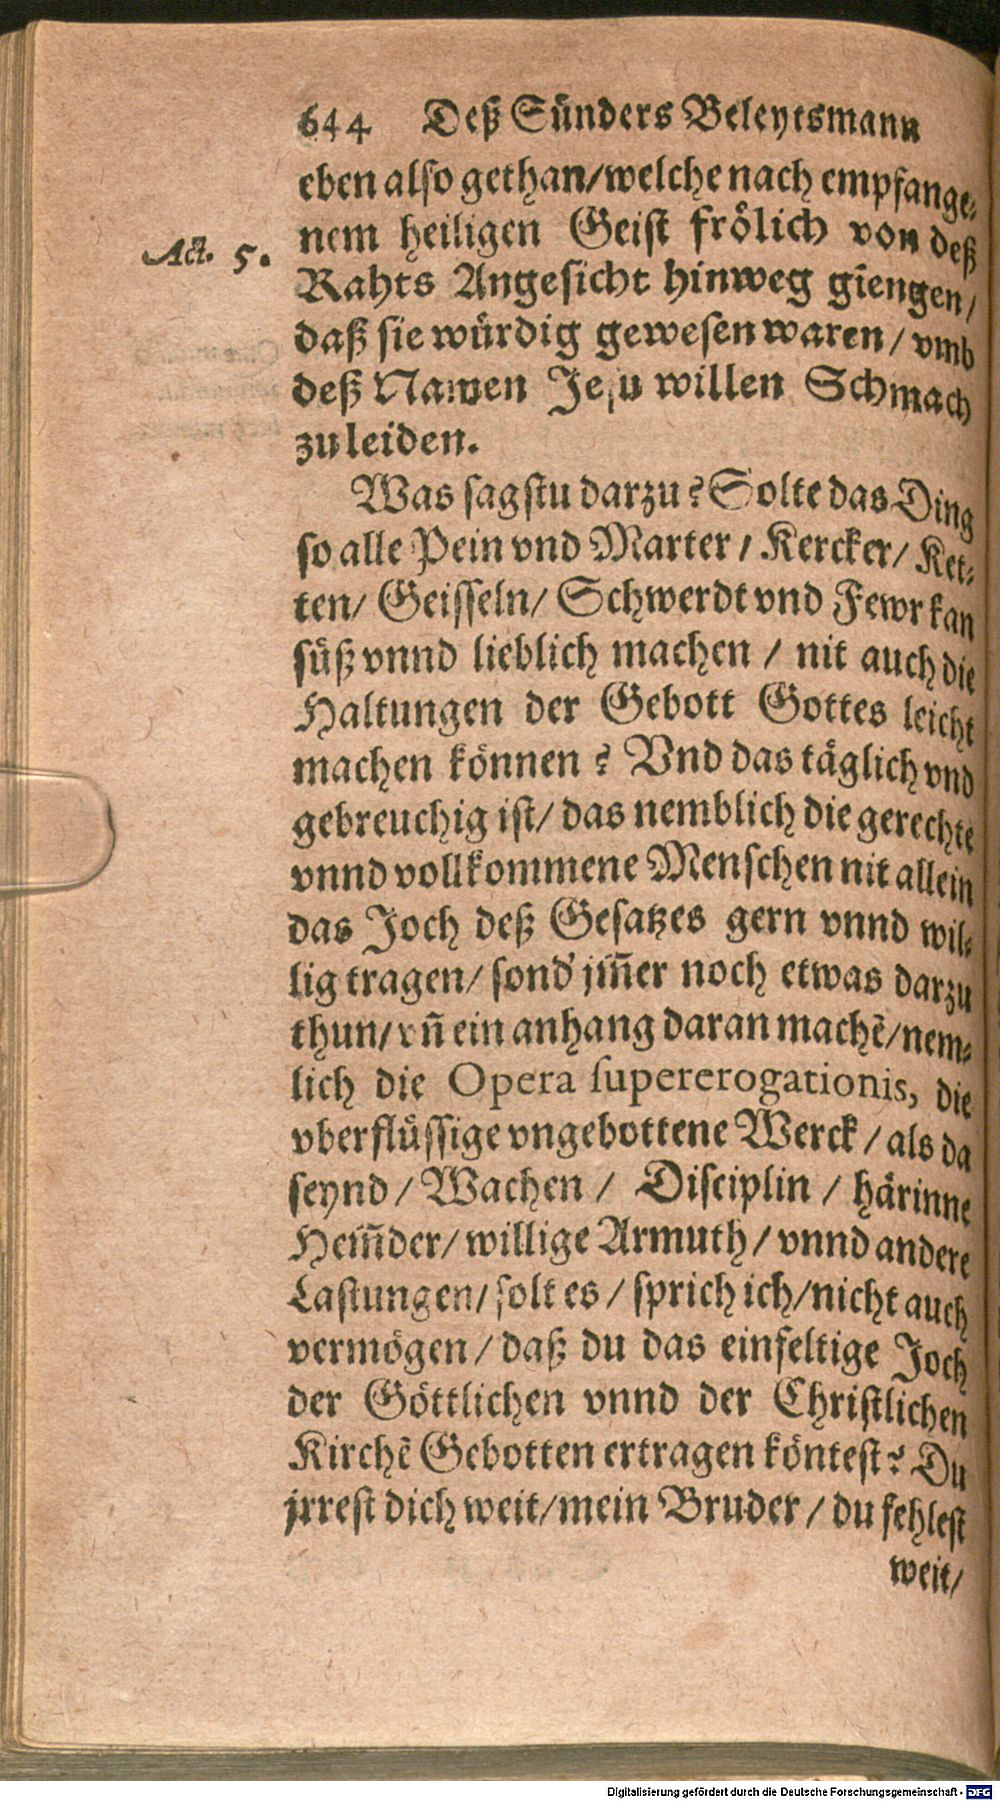 644 Deß Sünders Beleytsmann
eben also gethan/welche nach empfange⸗
nem heiligen Geist frölich von deß
Act. 5.
Rahts Angesicht hinweg giengen/
daß sie würdig gewesen waren/ vmb
deß Namen Jesu willen Schmach
zu leiden.
Was sagstu darzu? Solte das Ding
so alle Pein vnd Marter/ Kercker/ Ket⸗
ten/ Geisseln/ Schwerdt vnd Fewr kan
süß vnnd lieblich machen / nit auch die
Haltungen der Gebott Gottes leicht
machen können? Vnd das täglich vnd
gebreuchig ist/ das nemblich die gerechte
vnnd vollkommene Menschen nit allein
das Joch deß Gesatzes gern vnnd wil⸗
lig tragen/ sond' jm̃er noch etwas darzu
thun/ vñ ein anhang daran machẽ/nem⸗
lich die Opera supererogationis, die
vberflüssige vngebottene Werck/ als da
seynd/ Wachen / Disciplin / härinne
Hem̃der/ willige Armuth/ vnnd andere
Lastungen/ solt es/ sprich ich/nicht auch
vermögen/ daß du das einfeltige Joch
der Göttlichen vnnd der Christlichen
Kirchẽ Gebotten ertragen köntest? Du
jrrest dich weit/mein Bruder/ du fehlest
weit/
Digitalisierung gefördert durch die Deutsche Forschungsgemeinschaft - DFG